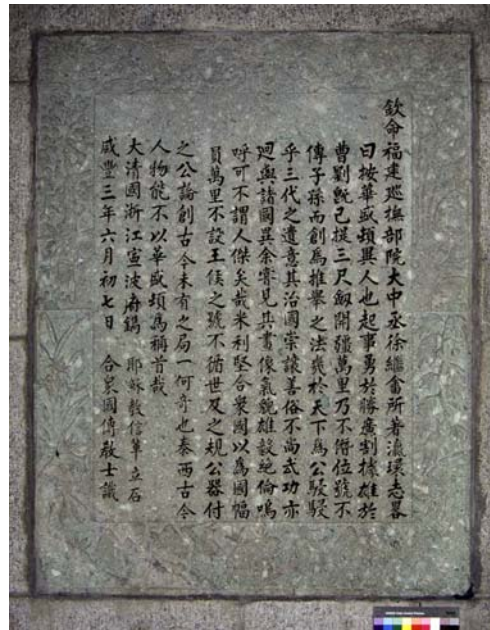 欽命福建巡撫部院大中丞徐繼畬所著瀛環志畧
曰按華盛頓異人也起事勇於勝廣割據雄於
曹劉既已提三尺劔開疆萬里乃不僭位號不
傳子孫而創爲推舉之法幾於天下爲公駸駸
乎三代之遺意其治國崇讓善俗不尚武功亦
迥與諸國異余嘗見其畫像氣貌雄毅絕倫嗚
呼可不謂人傑矣哉米利堅合衆國以爲國幅
員萬里不設王侯之號不循世及之規公器付
之公論創古今未有之局一何奇也泰西古今
人物能不以華盛頓爲稱首哉
大清國浙江寧波府鐫 耶穌教信輩立石
咸豐三年六月初七日 合衆國傳教士識